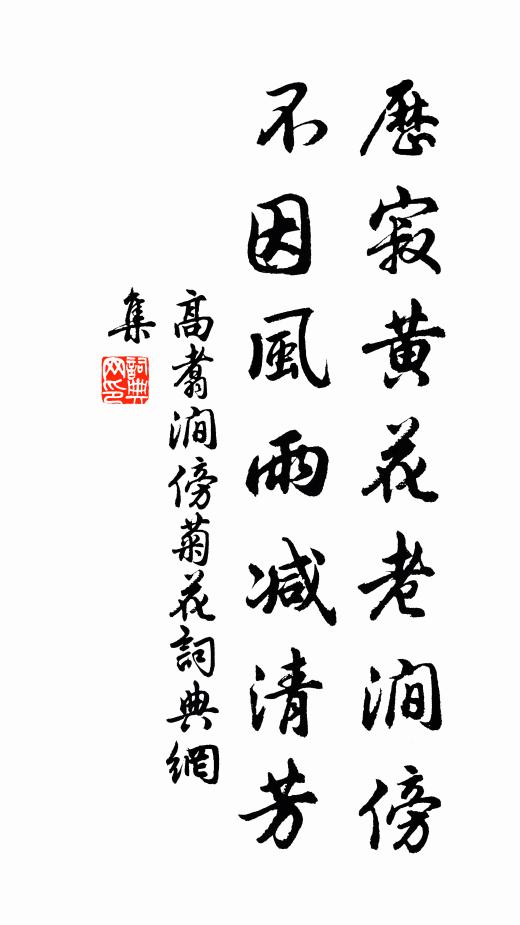 歷寂黃花老澗傍
不因風雨減清芳
高翥澗傍菊花詞典網
集
詞典
網印